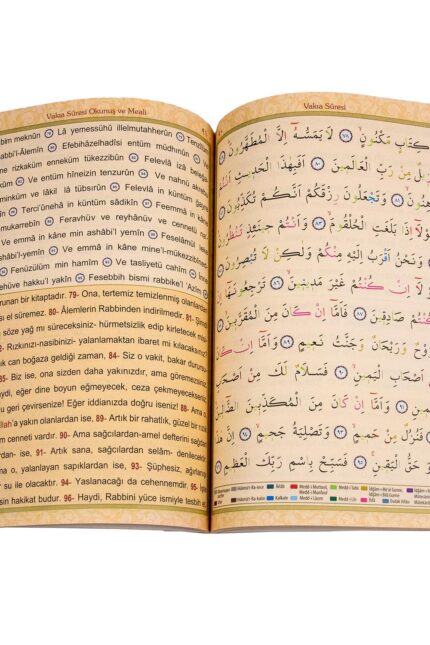 Vakıa Sûresi Okunuş ve Meali
bim meknûn Lâ yemessühû illelmutahherûn Tenzîlü
Rabbi'l-Âlemîn Efebihâzelhadîsi entüm müdhinûn
ne rizkaküm enneküm tükezzibûn Felevlâ izâ beleğa
ve entüm hîneizin tenzurûn Ve nahnü akrebü
minküm ve lâkil lâ tübsırûn Felevlâ in küntüm ğayra
în Terci'ûnehâ in küntüm sâdikîn Feemmâ in
mukarrabîn Feravhüv ve reyhânüv ve cennetü na
Ve emmâ in kâne min ashâbi'l-yemîn Feselâmül
min ashâbi'l-yemîn Ve emmâ in kâne mine'l-mükezzibîne
Fenüzülüm min hamîm Ve tasliyetü cahîm
hüve hakku'l yakîn Fesebbih bismi rabbike'l 'Azîm
runan bir kitaptadır. 79- Ona, tertemiz temizlenmiş olanlar
mez. 80- Âlemlerin Rabbinden indirilmedir. 81- Şimdi
u söze yağ mı süreceksiniz- hürmetsizlik edip kirletecek mi
z- Rızkınızı-nasibinizi- yalanlamaktan ibaret mi kılacaksınız
can boğaza geldiği zaman. 84- Siz o vakit, bakar durur
85- Biz ise, ona sizden daha yakınızdır. ama göremezsiniz
aydi, eğer dine boyun eğmeyecek, ceza çekmeyecekseniz
u geri çevirsenize! Eğer iddianızda doğru iseniz! 88- Ama o
Allah'a yakın olanlardan ise, 89- Artık bir rahatlık, güzel bir rızık
m cenneti vardır. 90- Ama sağcılardan-amel defterini sağdan
lardan ise, 91- Artık sana, sağcılardan selâm- denilecek
ma o, yalanlayan sapıklardan ise, 93- Şüphesiz, ağırlanışı
ar su ile olacaktır. 94- Yaslanacağı da cehennemdir. 95-
sin hakikat budur. 96- Haydi, Rabbini yüce ismiyle tesbih et
Vakıa Sûresi
كِتَابٍ مَكْنُونٍ ﴿٧٨﴾ لَا يَمَسُّهُٓ اِلَّا الْمُطَهَّرُونَ ﴿٧٩﴾
مِنْ رَبِّ الْعَالَمِينَ ﴿٨٠﴾ اَفَبِهٰذَا الْحَدِيثِ اَنْتُمْ
﴿٨١﴾ وَتَجْعَلُونَ رِزْقَكُمْ اَنَّكُمْ تُكَذِّبُونَ ﴿٨٢﴾
لَوْلَٓا اِذَا بَلَغَتِ الْحُلْقُومَ ﴿٨٣﴾ وَاَنْتُمْ حِينَئِذٍ تَنْظُرُونَ
﴿٨٤﴾ وَنَحْنُ اَقْرَبُ اِلَيْهِ مِنْكُمْ وَلٰكِنْ لَا تُبْصِرُونَ ﴿٨٥﴾
لَٓا اِنْ كُنْتُمْ غَيْرَ مَدِينِينَ ﴿٨٦﴾ تَرْجِعُونَهَٓا اِنْ
كُنْتُمْ صَادِقِينَ ﴿٨٧﴾ فَاَمَّٓا اِنْ كَانَ مِنَ الْمُقَرَّبِينَ ﴿٨٨﴾
رَوْحٌ وَرَيْحَانٌ وَجَنَّتُ نَعِيمٍ ﴿٨٩﴾ وَاَمَّٓا اِنْ كَانَ مِنْ
اَصْحَابِ الْيَمِينِ ﴿٩٠﴾ فَسَلَامٌ لَكَ مِنْ اَصْحَابِ
الْيَمِينِ ﴿٩١﴾ وَاَمَّٓا اِنْ كَانَ مِنَ الْمُكَذِّبِينَ الضَّٓالِّينَ
﴿٩٢﴾ فَنُزُلٌ مِنْ حَمِيمٍ ﴿٩٣﴾ وَتَصْلِيَةُ جَحِيمٍ ﴿٩٤﴾ اِنَّ هٰذَا
حَقُّ الْيَقِينِ ﴿٩٥﴾ فَسَبِّحْ بِاسْمِ رَبِّكَ الْعَظِيمِ ﴿٩٦﴾